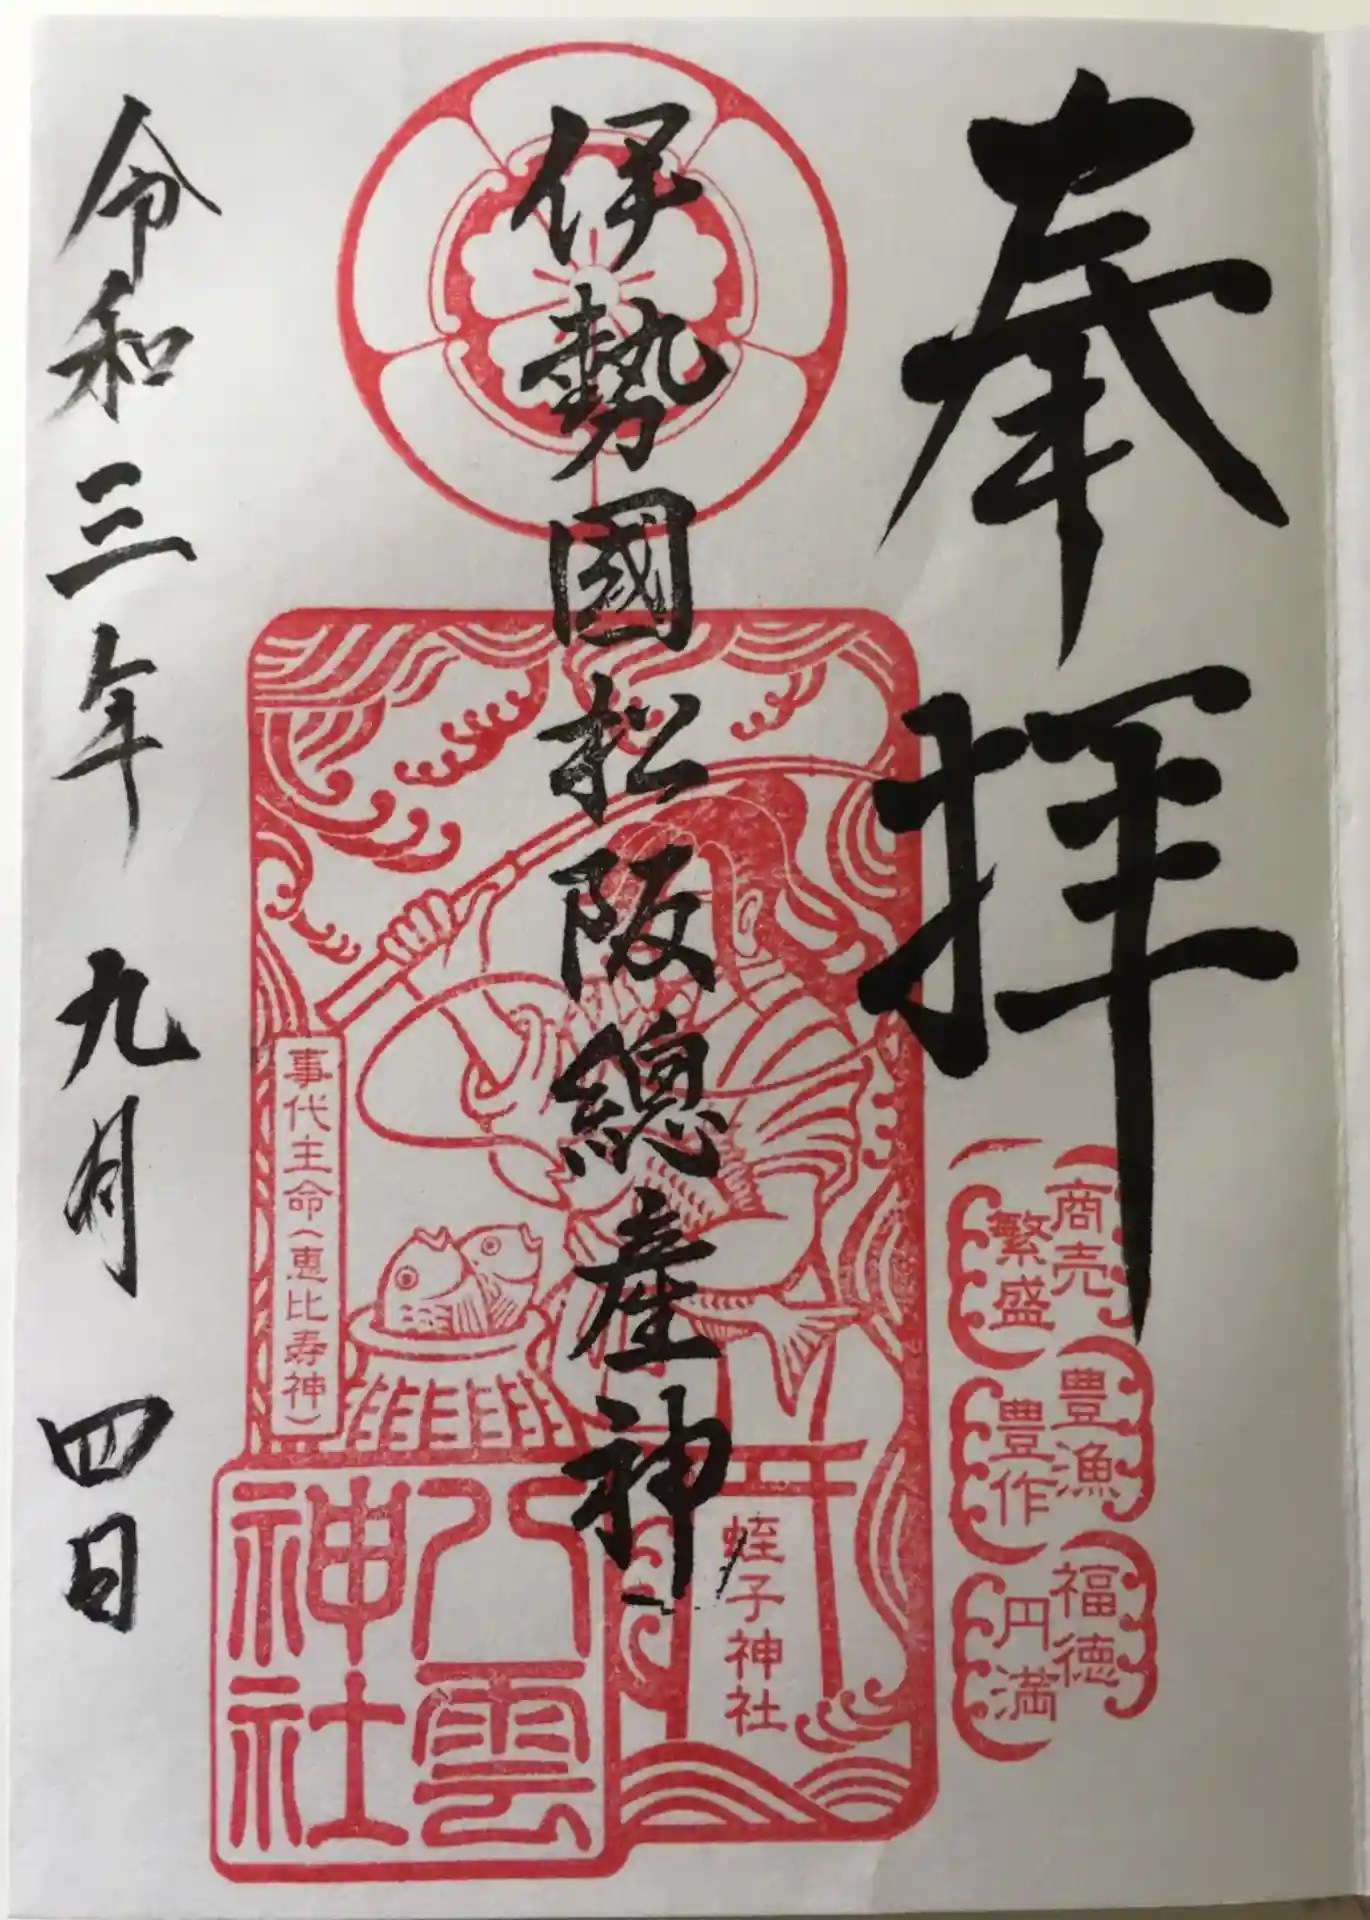 奉拝
商売
繁盛
豊漁
豊作
福徳
円満
伊勢國松阪總産神
蛭子神社
事代主命(恵比寿神)
八雲
神社
令和三年九月四日